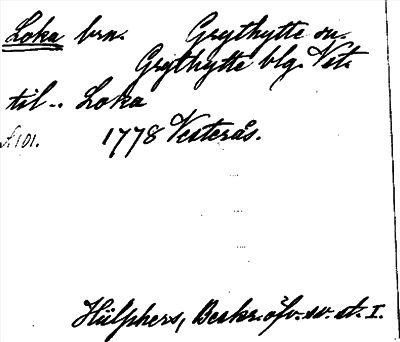 Loka brn. Grythytte sn.
Grythytte blg. Vstm.
til.. Loka
S. 101. 1778 Vesterås.
Hülphers, Beskr. öfv. sv. st. I.